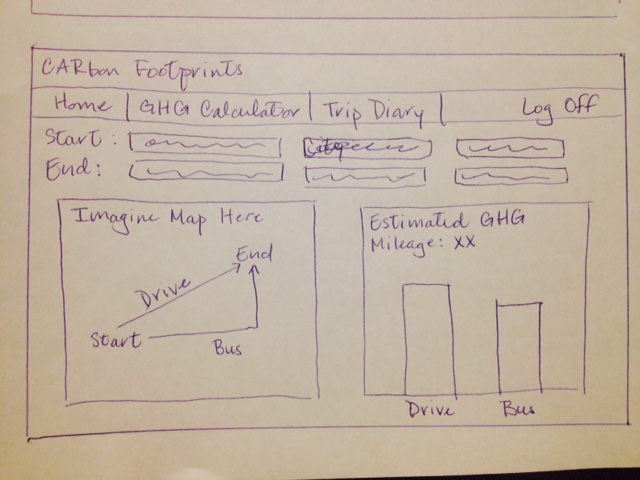 CARbon Footprints
Home GHG Calculator Trip Diary Log Off
Start:
End:
Imagine Map Here
End
Drive
Start
Bus
Estimated GHG
Mileage: XX
Drive Bus